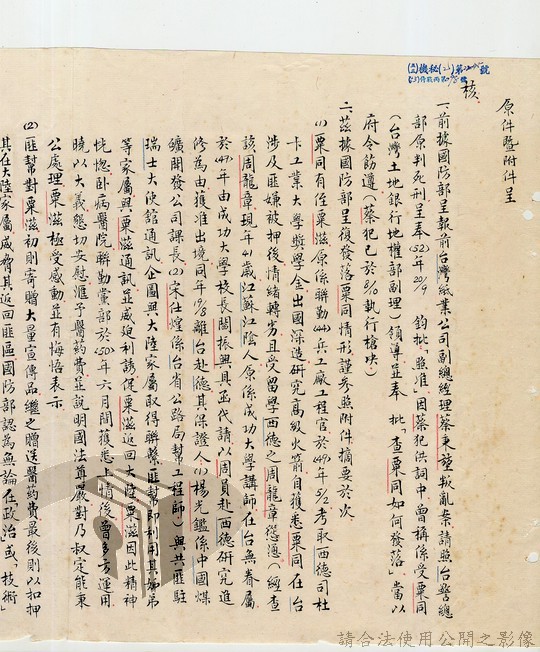 原件暨附件呈
核
一、前據國防部呈報前台灣紙業公司副總經理蔡東堃叛亂案請照台警總
部原判死刑呈奉(52)年20/9 鈞批「照准」因蔡犯供詞中曾稱係受粟同
(台灣土地銀行地權部副理)領導並奉 批「查粟同如何發落」當以
府令飭遵(蔡犯已於5/10執行槍決)
二、茲據國防部呈復發落粟同情形謹參照附件摘要於次
(1)粟同有侄粟滋原係聯勤(44)兵工廠工程官於(49)年5/2考取西德司杜
卡工業大學獎學金出國深造研究高級火箭自獲悉粟同在台
涉及匪嫌被押後情緒轉劣且受留學西德之周龍章慫恿(經查
該周龍章現年41歲江蘇江陰人原係成功大學講師在台無眷屬
於(49)年由成功大學校長閻振興具函代請以周員赴西德研究進
修為由獲准出境同年19/8離台赴德其保證人(1)楊光鑑係中國煤
礦開發公司課長(2)宋仕煌係台省公路局幫工程師)與共匪駐
瑞士大使館通訊企圖與大陸家屬取得聯繫匪幫即利用其姊弟
等家屬與粟滋通訊並威迫利誘促粟滋返回大陸粟滋因此精神
恍惚臥病醫院聯勤黨部於(50)年六月間獲悉上情後曾多方運用
曉以大義懇切安慰滙予醫藥費並說明國法尊嚴對乃叔定能秉
公處理粟滋極受感動並有悔悟表示
(2)匪幫對粟滋初則寄贈大量宣傳品繼之贈送醫藥費最後則以扣押
其在大陸家屬威脅其返回匪區國防部認為無論在政治或「技術」
請合法使用公開之影像